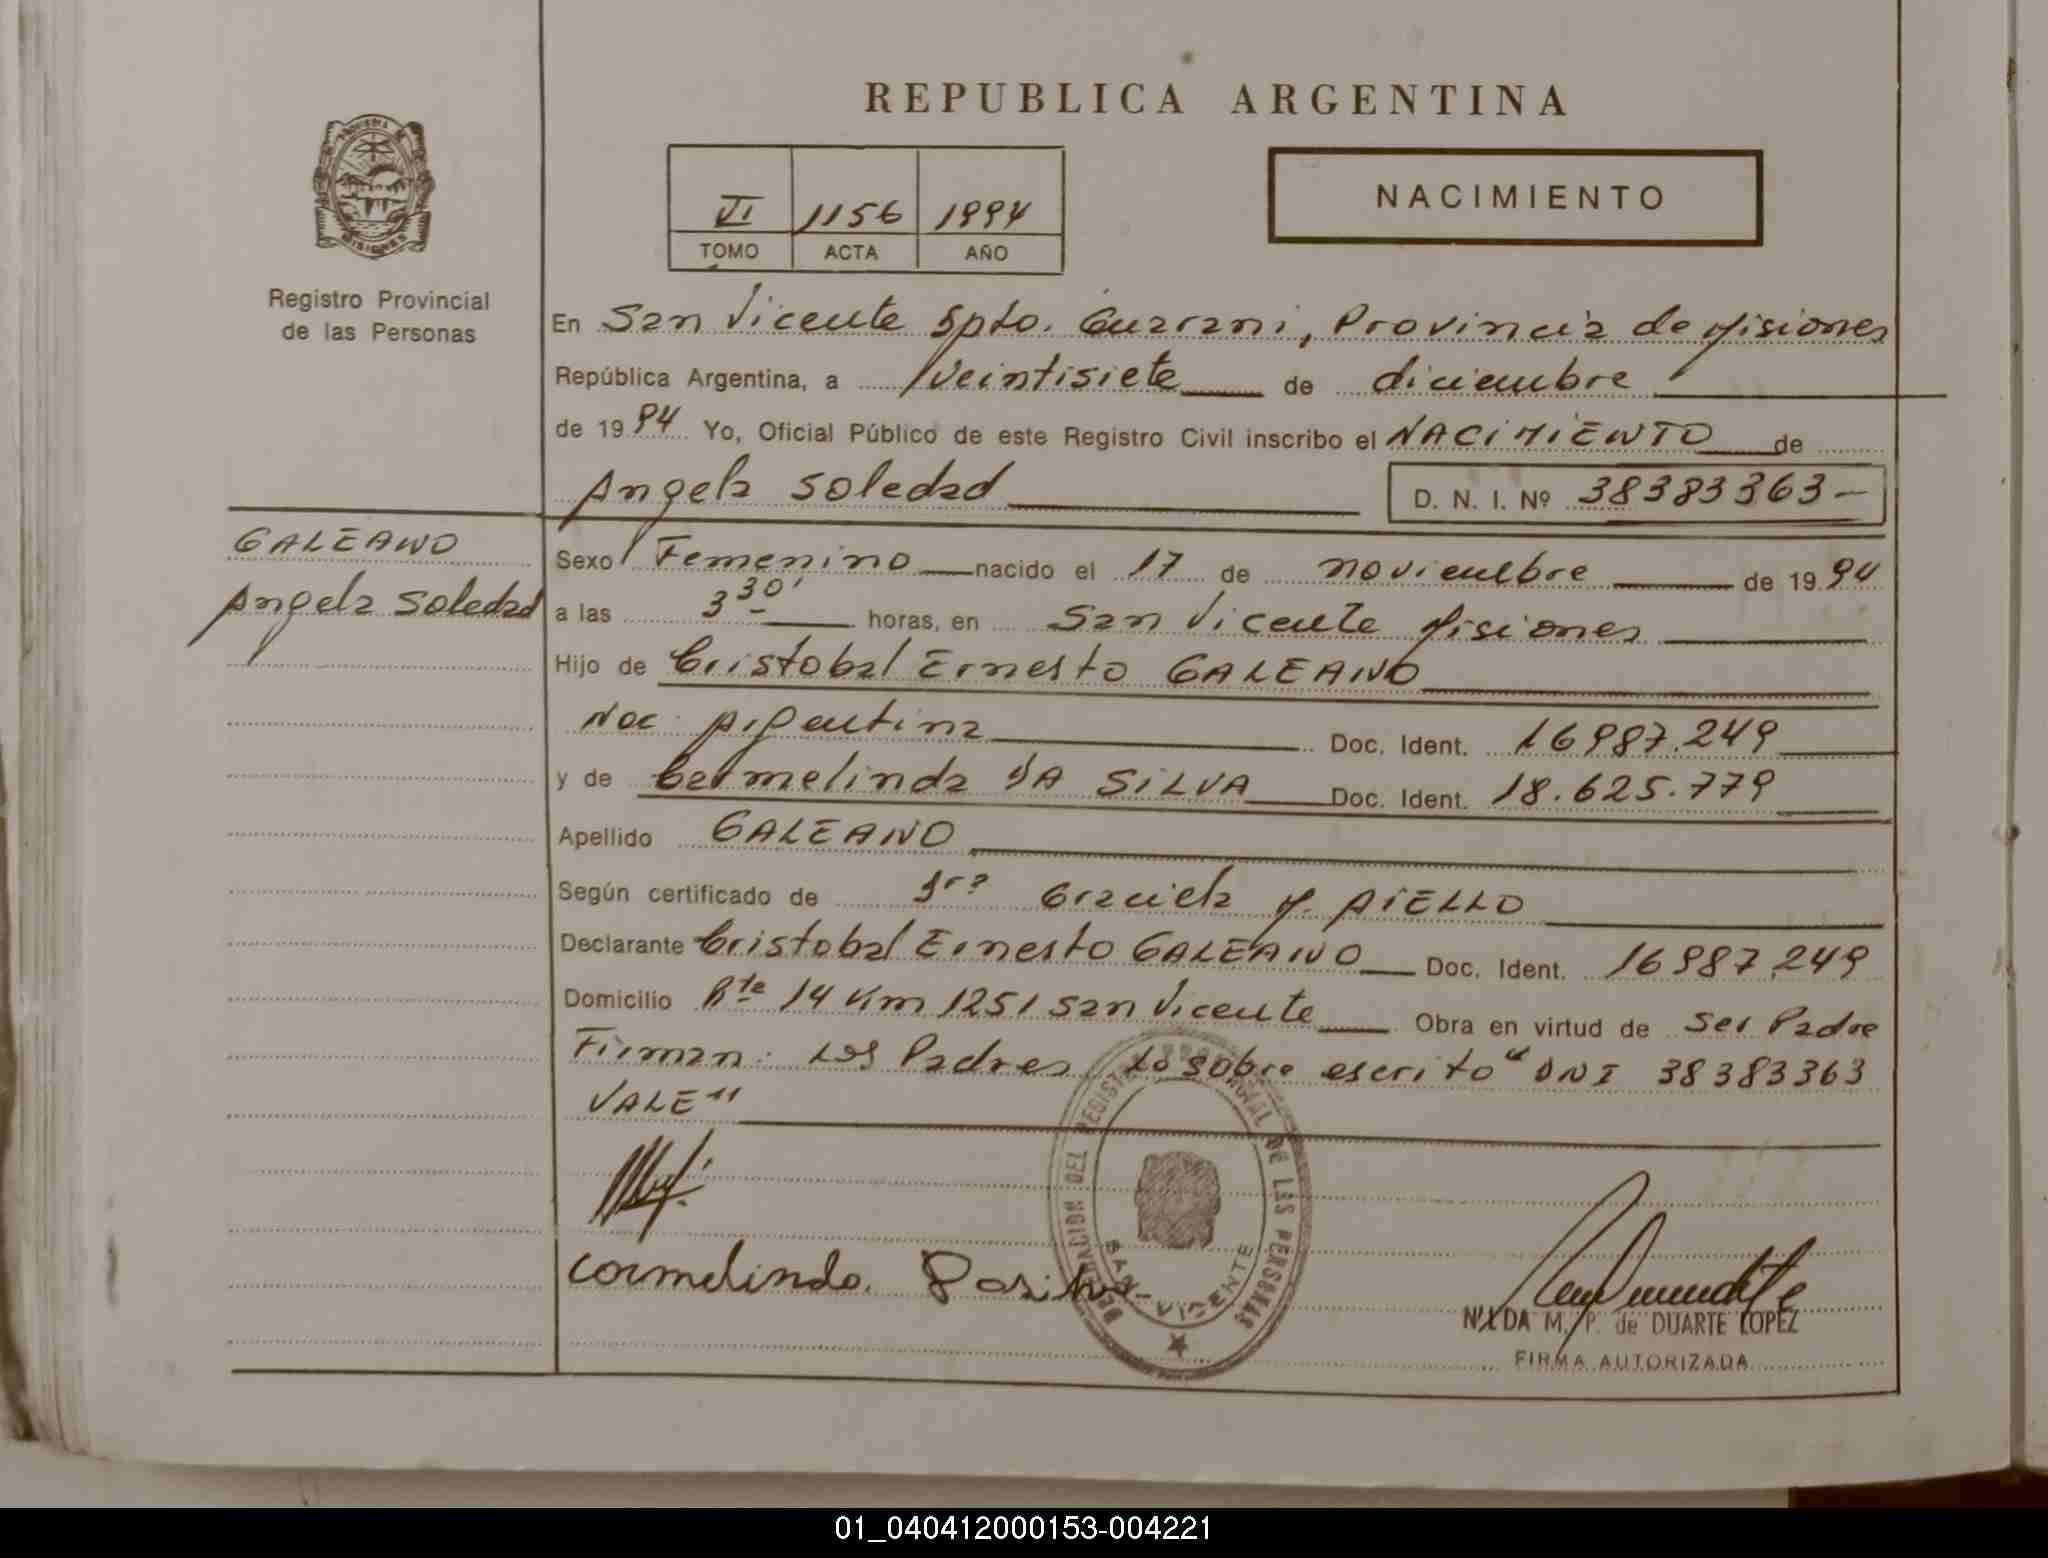 REPUBLICA ARGENTINA
VI 1156 1994
TOMO ACTA AÑO
NACIMIENTO
Registro Provincial
de las Personas
En San Vicente Dpto. Guarani, Provincia de Misiones
República Argentina, a veintisiete de diciembre
de 1994 Yo, Oficial Público de este Registro Civil inscribo el NACIMIENTO de
Angela Soledad D. N. I. Nº 38383363-
GALEANO
Angela Soledad
Sexo Femenino nacido el 17 de noviembre de 1994
a las 3 30' horas, en San Vicente Misiones
Hijo de Cristobal Ernesto GALEANO
Nac. Argentina Doc. Ident. 16987.249
y de Carmelinda DA SILVA Doc. Ident. 18.625.779
Apellido GALEANO
Según certificado de Dra Graciela M. AIELLO
Declarante Cristobal Ernesto GALEANO Doc. Ident. 16987.249
Domicilio Rta 14 Km 1251 San Vicente Obra en virtud de Ser Padre
Firman: Los Padres Lo sobre escrito " DNI 38383363
VALE"
DELEGACION DEL REGISTRO PROVINCIAL DE LAS PERSONAS
SAN VICENTE
Carmelinda.
NILDA M. P. de DUARTE LOPEZ
FIRMA AUTORIZADA
01_040412000153-004221